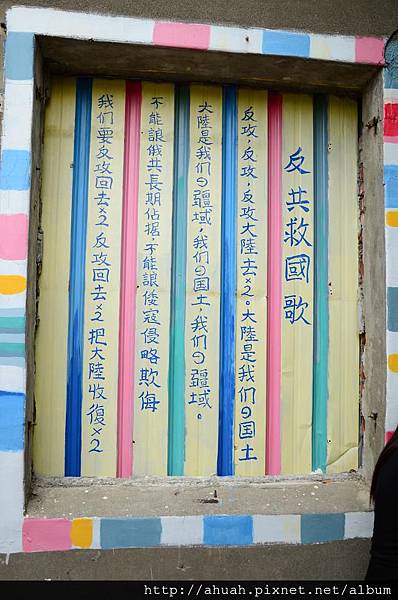 反共救國歌
反攻，反攻，反攻大陸去×2。大陸是我們の国土
大陸是我們の疆域，我們の国土，我們の疆域。
不能讓俄共長期佔据，不能讓倭寇侵略欺侮
我們要反攻回去×2 反攻回去×2 把大陸收復×2
http://ahuah.pixnet.net/album